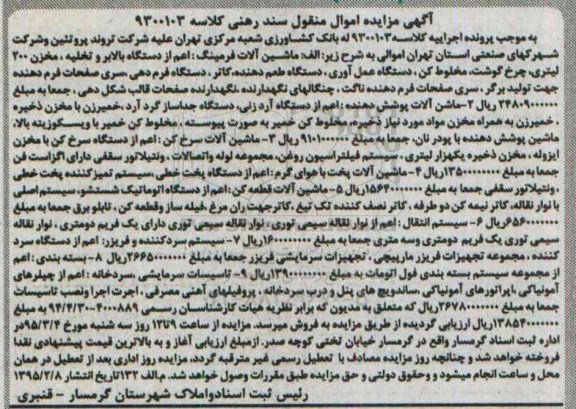 آگهی مزایده اموال منقول سند رهنی کلاسه ۹۳۰۰۱۰۳
به موجب پرونده اجراییه کلاسه ۹۳۰۰۱۰۳ له بانک کشاورزی شعبه مرکزی تهران علیه شرکت تروند پروتئین وشرکت
شهرکهای صنعتی استان تهران اموالی به شرح زیر: الف: ماشین آلات فرمینگ: اعم از دستگاه بالابر و تخلیه ، مخزن ۲۰۰
لیتری، چرخ گوشت، مخلوط کن ، دستگاه عمل آوری ، دستگاه طعم دهنده، کاتر ، دستگاه فرم دهی ،سری صفحات فرم دهنده
جهت تولید برگر ، سری صفحات فرم دهنده ناگت ، چنگالهای نگهدارنده ،نگهدارنده صفحات قالب شکل دهی ، جمعا به مبلغ
ریال ۲-ماشین آلات پوشش دهنده : اعم از دستگاه آرد زنی، دستگاه جداساز گرد آرد ،خمیرزن با مخزن ذخیره
، خمیرزن به همراه مخزن مواد مورد نیاز خمیر ، مخلوط کن خمیر به صورت پیوسته ، مخلوط کن خمیر با ویسکوزیته بالا،
ماشین پوشش دهنده با پودر نان، جمعا به مبلغ ریال ۳- ماشین آلات سرخ کن : اعم از دستگاه سرخ کن با مخزن
ایزوله ، مخزن ذخیره یکهزار لیتری ، سیستم فیلتراسیون روغن، مجموعه لوله واتصالات ، ونتیلاتور سقفی دارای اگزاست فن
جمعا به مبلغ ریال ۴- ماشین آلات پخت با هوای گرم: اعم از دستگاه پخت خطی ،سیستم تمیز کننده پخت خطی
، ونتیلاتور سقفی جمعا به مبلغ ریال ۵- ماشین آلات قطعه کن: اعم از دستگاه اتوماتیک شستشو، سیستم اصلی
با نوار نقاله، کاتر نیمه کن دو طرفه ، کاتر نصف کننده تک تیغ ، کاتر جهت ران مرغ ،فیله ساز وقطعه کن ، تابلو برق جمعا به مبلغ
ریال ۶- سیستم انتقال : اعم از نوار نقاله سیمی توری ، نوار نقاله سیمی توری دارای یک فریم دومتری ، نوار نقاله
سیمی توری یک فریم دومتری وسه متری جمعا به مبلغ ریال ۷- سیستم سردکننده و فریزر: اعم از دستگاه سرد
کننده ، مجموعه تجهیزات فریزر مارپیچی ، تجهیزات سرمایشی فریزر جمعا به مبلغ ریال ۸- بسته بندی : اعم
از مجموعه سیستم بسته بندی فول اتومات به مبلغ ریال ۹- تاسیسات سرمایشی ،سردخانه : اعم از چیلرهای
آمونیاکی ،اپراتورهای آمونیاکی ،ساندویچ های پنل و درب سردخانه ، پروفیلهای آهنی مصرفی ، اجرت اجرا ونصب تاسیسات
جمعا به مبلغ ریال که متعلق به مدیون که برابر نظریه هیات کارشناسان رسمی ۴۰۰۰۸۸۹-۹۴/۴/۳۰ به مبلغ
ریال ارزیابی گردیده از طریق مزایده به فروش میرسد. مزایده از ساعت ۹ تا ۱۲ روز سه شنبه مورخ ۹۵/۳/۴ در
اداره ثبت اسناد گرمسار واقع در گرمسار خیابان تختی کوچه صدر. ازمبلغ ارزیابی آغاز و به بالاترین قیمت پیشنهادی نقدا
فروخته خواهد شد و چنانچه روز مزایده مصادف با تعطیل رسمی غیر مترقبه گردد، مزایده روز اداری بعد از تعطیل در همان
محل و ساعت انجام میشود و وحقوق دولتی و حق مزایده طبق مقررات وصول خواهد شد. م.الف ۱۳۲ تاریخ انتشار ۱۳۹۵/۲/۸
رئیس ثبت اسنادواملاک شهرستان گرمسار - قنبری